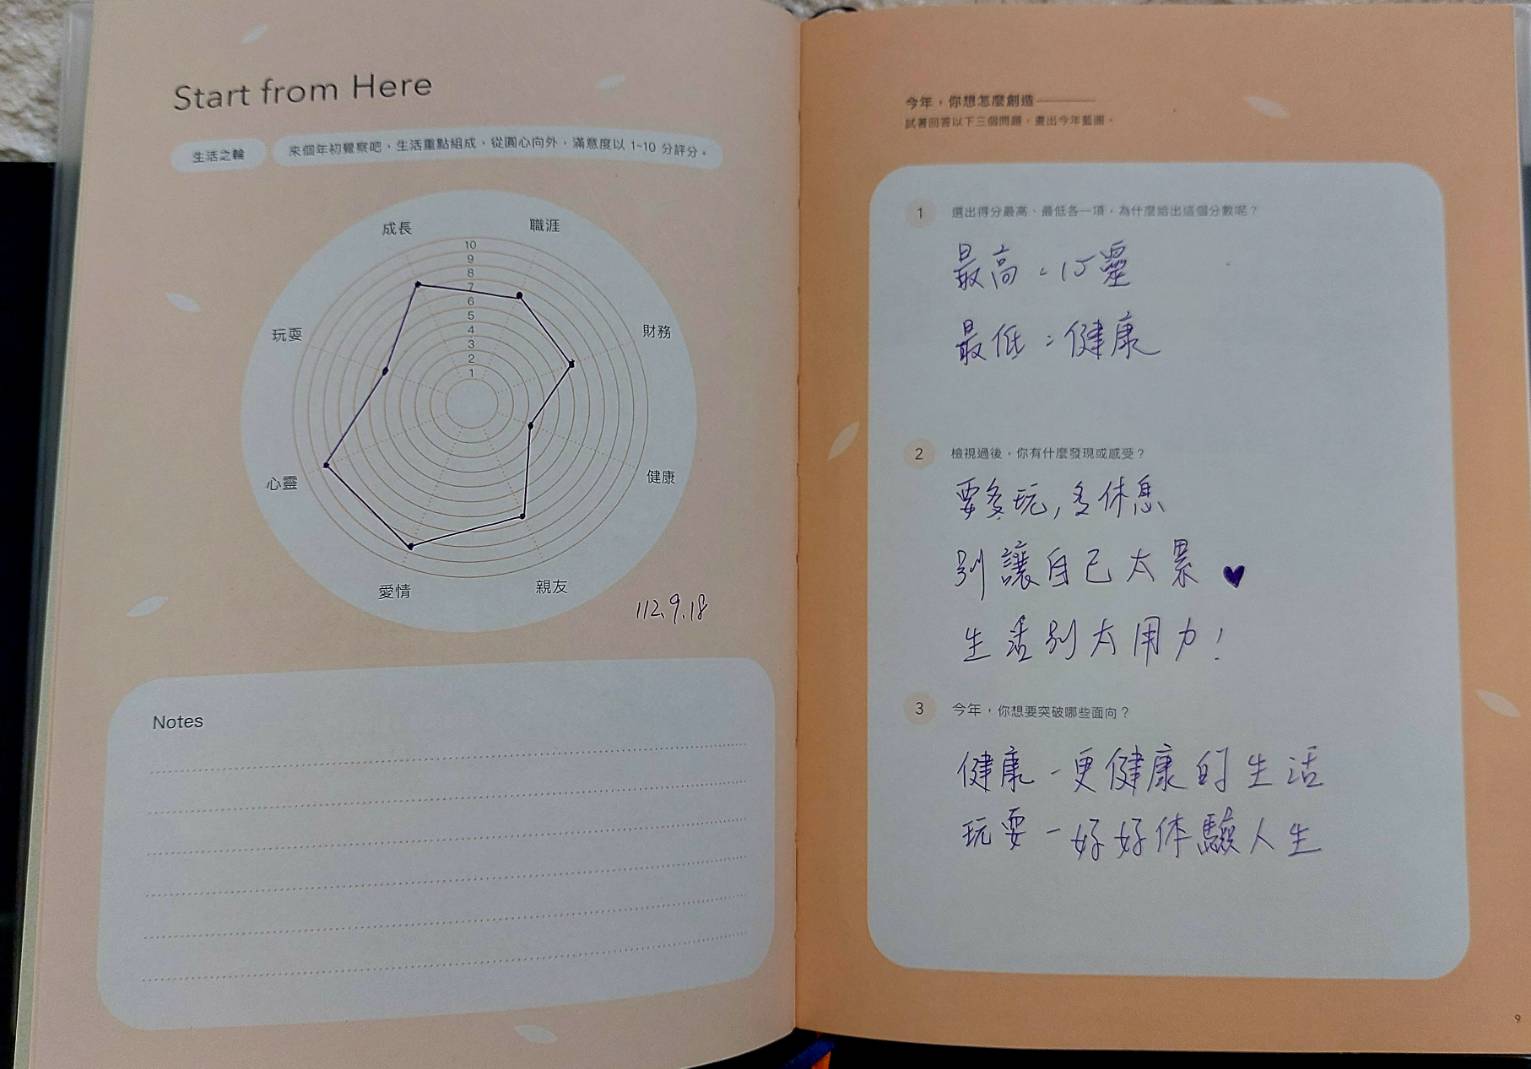 Start from Here
生活之輪
來個年初覺察吧、生活重點組成、從圓心向外，滿意度以 1~10 分評分。
成長
職涯
玩耍
財務
心靈
健康
愛情
親友
10
9
8
7
6
5
4
3
2
1
112.9.18
Notes
今年，你想怎麼創造
試著回答以下三個問題，畫出今年藍圖。
1
選出得分最高、最低各一項，為什麼給出這個分數呢？
最高：心靈
最低：健康
2
檢視過後，你有什麼發現或感受？
要多玩，多休息
別讓自己太累♥
生活別太用力！
3
今年，你想要突破哪些面向？
健康－更健康的生活
玩耍－好好体驗人生
9